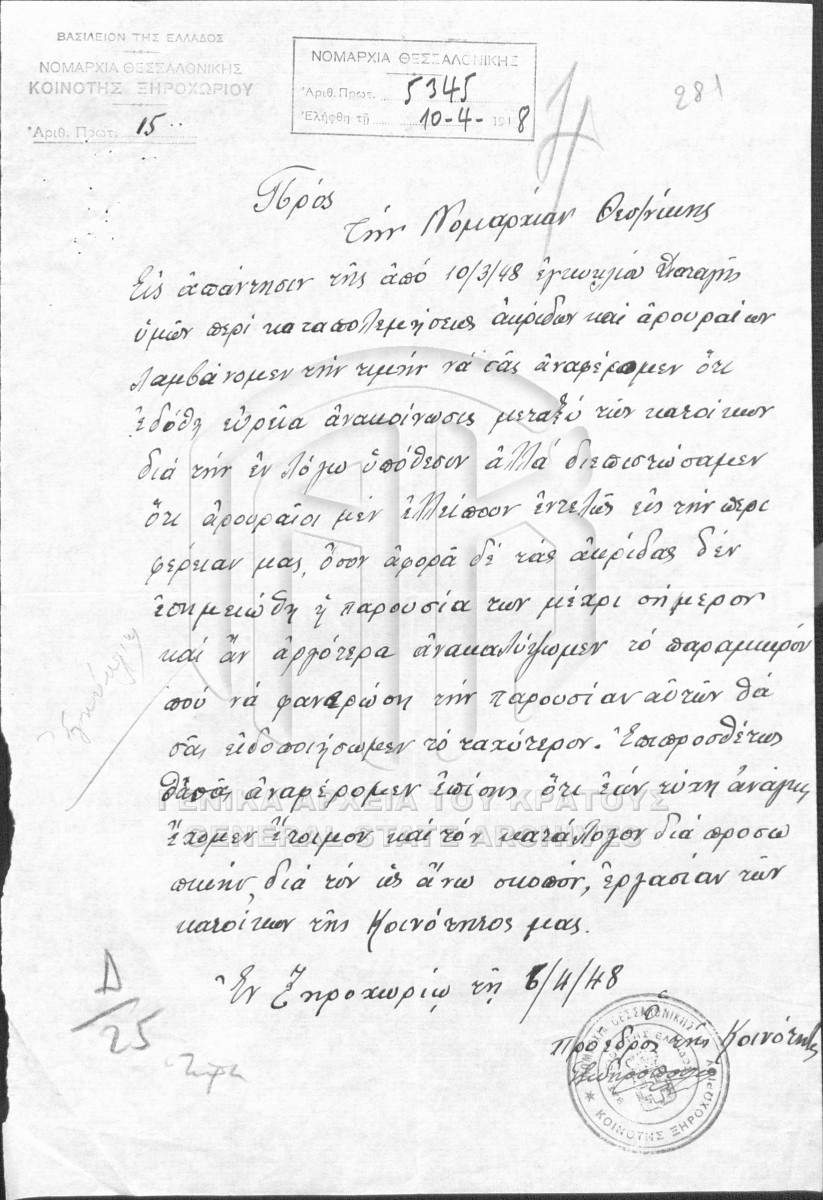 ΒΑΣΙΛΕΙΟΝ ΤΗΣ ΕΛΛΑΔΟΣ
ΝΟΜΑΡΧΙΑ ΘΕΣΣΑΛΟΝΙΚΗΣ
ΚΟΙΝΟΤΗΣ ΞΗΡΟΧΩΡΙΟΥ
Ἀριθ. Πρωτ. 15
ΝΟΜΑΡΧΙΑ ΘΕΣΣΑΛΟΝΙΚΗΣ
Ἀριθ. Πρωτ. 5345
Ἐλήφθη τῇ 10-4-1948
281
Πρός
τήν Νομαρχίαν Θεσ/νίκης
Εἰς ἀπάντησιν τῆς ἀπό 10/3/48 ἐγκυκλίου διαταγῆς
ὑμῶν περί καταπολεμήσεως ἀκρίδων καί ἀρουραίων
λαμβάνομεν τήν τιμήν νά σᾶς ἀναφέρομεν ὅτι
ἐδόθη εὐρεῖα ἀνακοίνωσις μεταξύ τῶν κατοίκων
διά τήν ἐν λόγω ὑπόθεσιν ἀλλά διεπιστώσαμεν
ὅτι ἀρουραῖοι μέν ἐλλείπουν ἐντελῶς εἰς τήν περι
φέρειαν μας, ὅσον ἀφορᾶ δέ τάς ἀκρίδας δέν
ἐσημειώθη ἡ παρουσία των μέχρι σήμερον
καί ἄν ἀργότερα ἀνακαλύψωμεν τό παραμικρόν
πού νά φανερώση τήν παρουσίαν αὐτῶν θά
σᾶς εἰδοποιήσωμεν τό ταχύτερον. Ἐπιπροσθέτως
θά σᾶς ἀναφέρομεν ἐπίσης ὅτι ἐάν τύχη ἀνάγκης
ἔχομεν ἕτοιμον καί τόν κατάλογον διά προσω
πικήν, διά τόν ὡς ἄνω σκοπόν, ἐργασίαν τῶν
κατοίκων τῆς Κοινότητος μας.
Ἐν Ξηροχωρίῳ τῇ 6/4/48
Ὁ
Πρόεδρος τῆς Κοινότητος
Δ/25
ΓΕΝΙΚΑ ΑΡΧΕΙΑ ΤΟΥ ΚΡΑΤΟΥΣ
GENERAL STATE ARCHIVES
ΚΟΙΝΟΤΗΣ ΞΗΡΟΧΩΡΙΟΥ